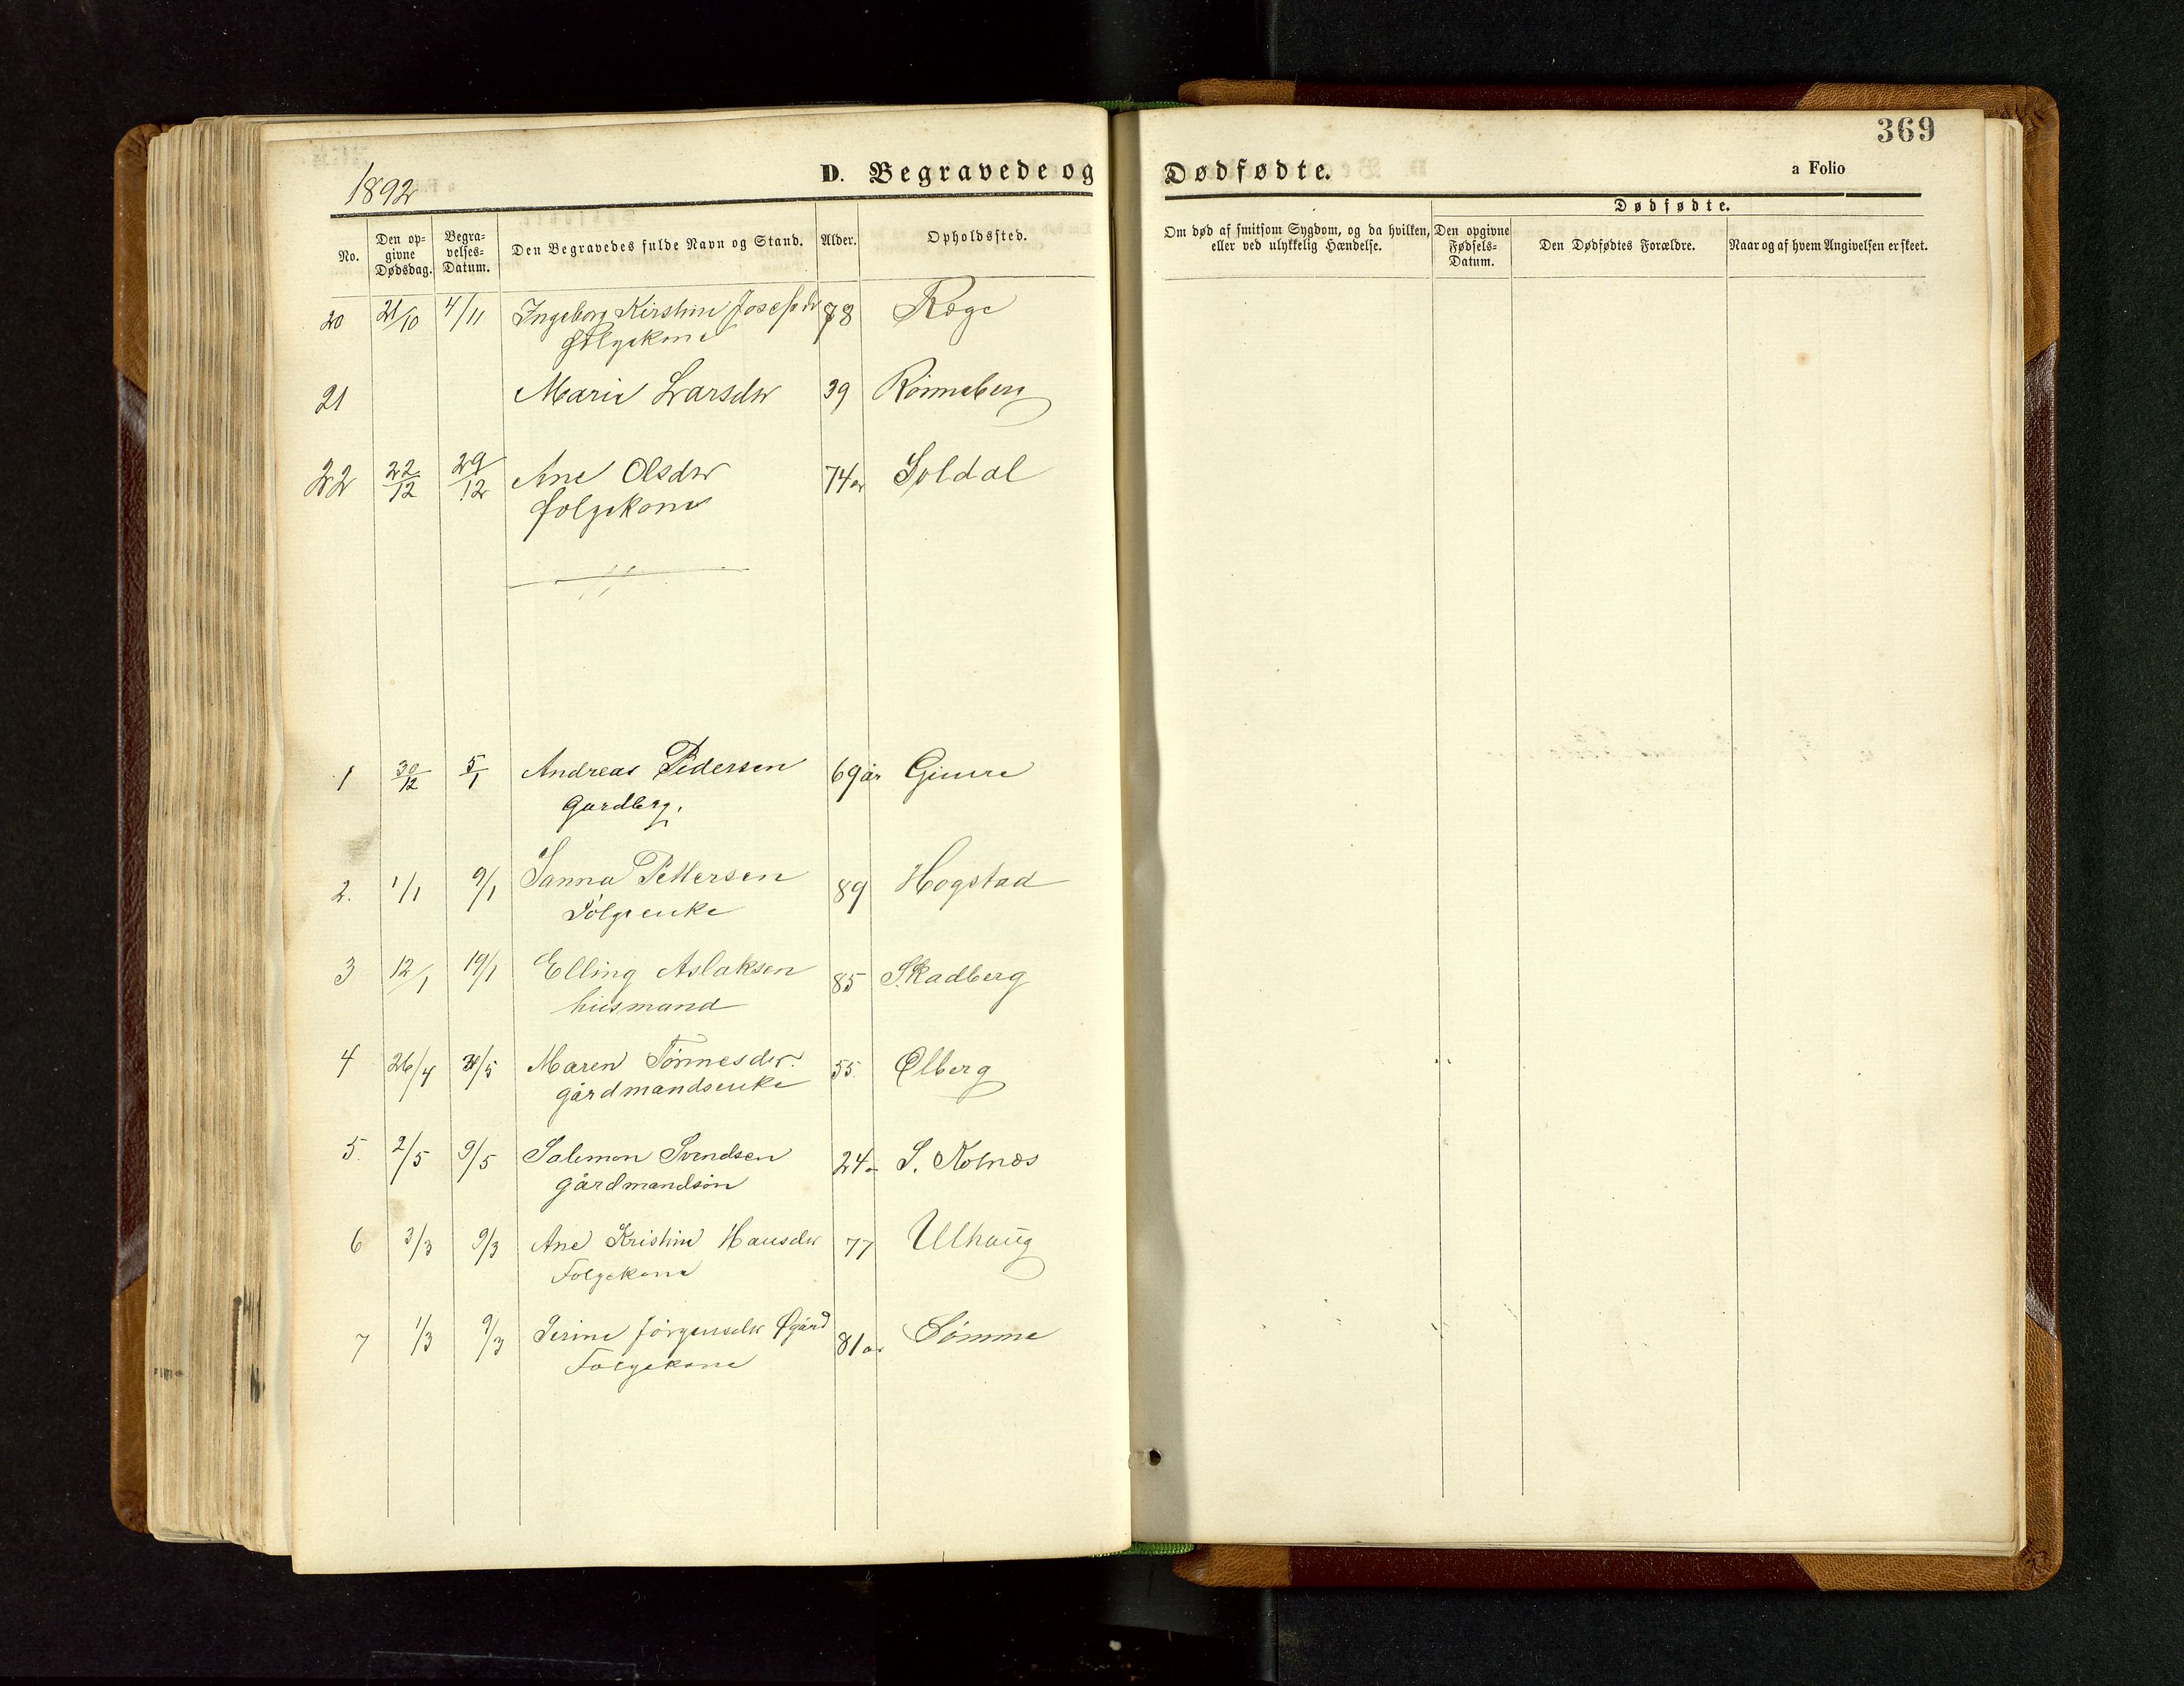 369
1892
D. Begravede og Dødfødte.
a Folio
No.
Den opgivne Dødsdag.
Begravelses-Datum.
Den Begravedes fulde Navn og Stand.
Alder.
Opholdssted.
Om død af smitsom Sygdom, og da hvilken, eller ved ulykkelig Hændelse.
Dødfødte.
Den opgivne Fødsels-Datum.
Den Dødfødtes Forældre.
Naar og af hvem Angivelsen er skeet.
20 21/10 4/11 Ingeborg Kirstine Josefsdr 78 Rege
folgekone
21 Marie Larsdtr 39 Rönneberg
22 22/12 29/12 Ane Olsdtr 74 år Soldal
folgekone
1 30/12 5/1 Andreas Pedersen 69 år Gimre
Gardbrg.
2. 1/1 9/1 Sanna Pettersen 89 Hogstad
Folgeenke
3 12/1 19/1 Elling Aslaksen 85 Skadberg
husmand
4 26/4 /5 Maren Tönnesdtr. 55 Ølberg
gårdmandsenke
5. 2/5 9/5 Salemon Svendsen 24 S. Kolnes
gårdmandsön
6 3/3 9/3 Ane Kristine Hansdtr 77 Ulhaug
Folgekone
7 1/3 9/3 Serine Jörgensdtr Øgård 81 år Sömme
Folgekone